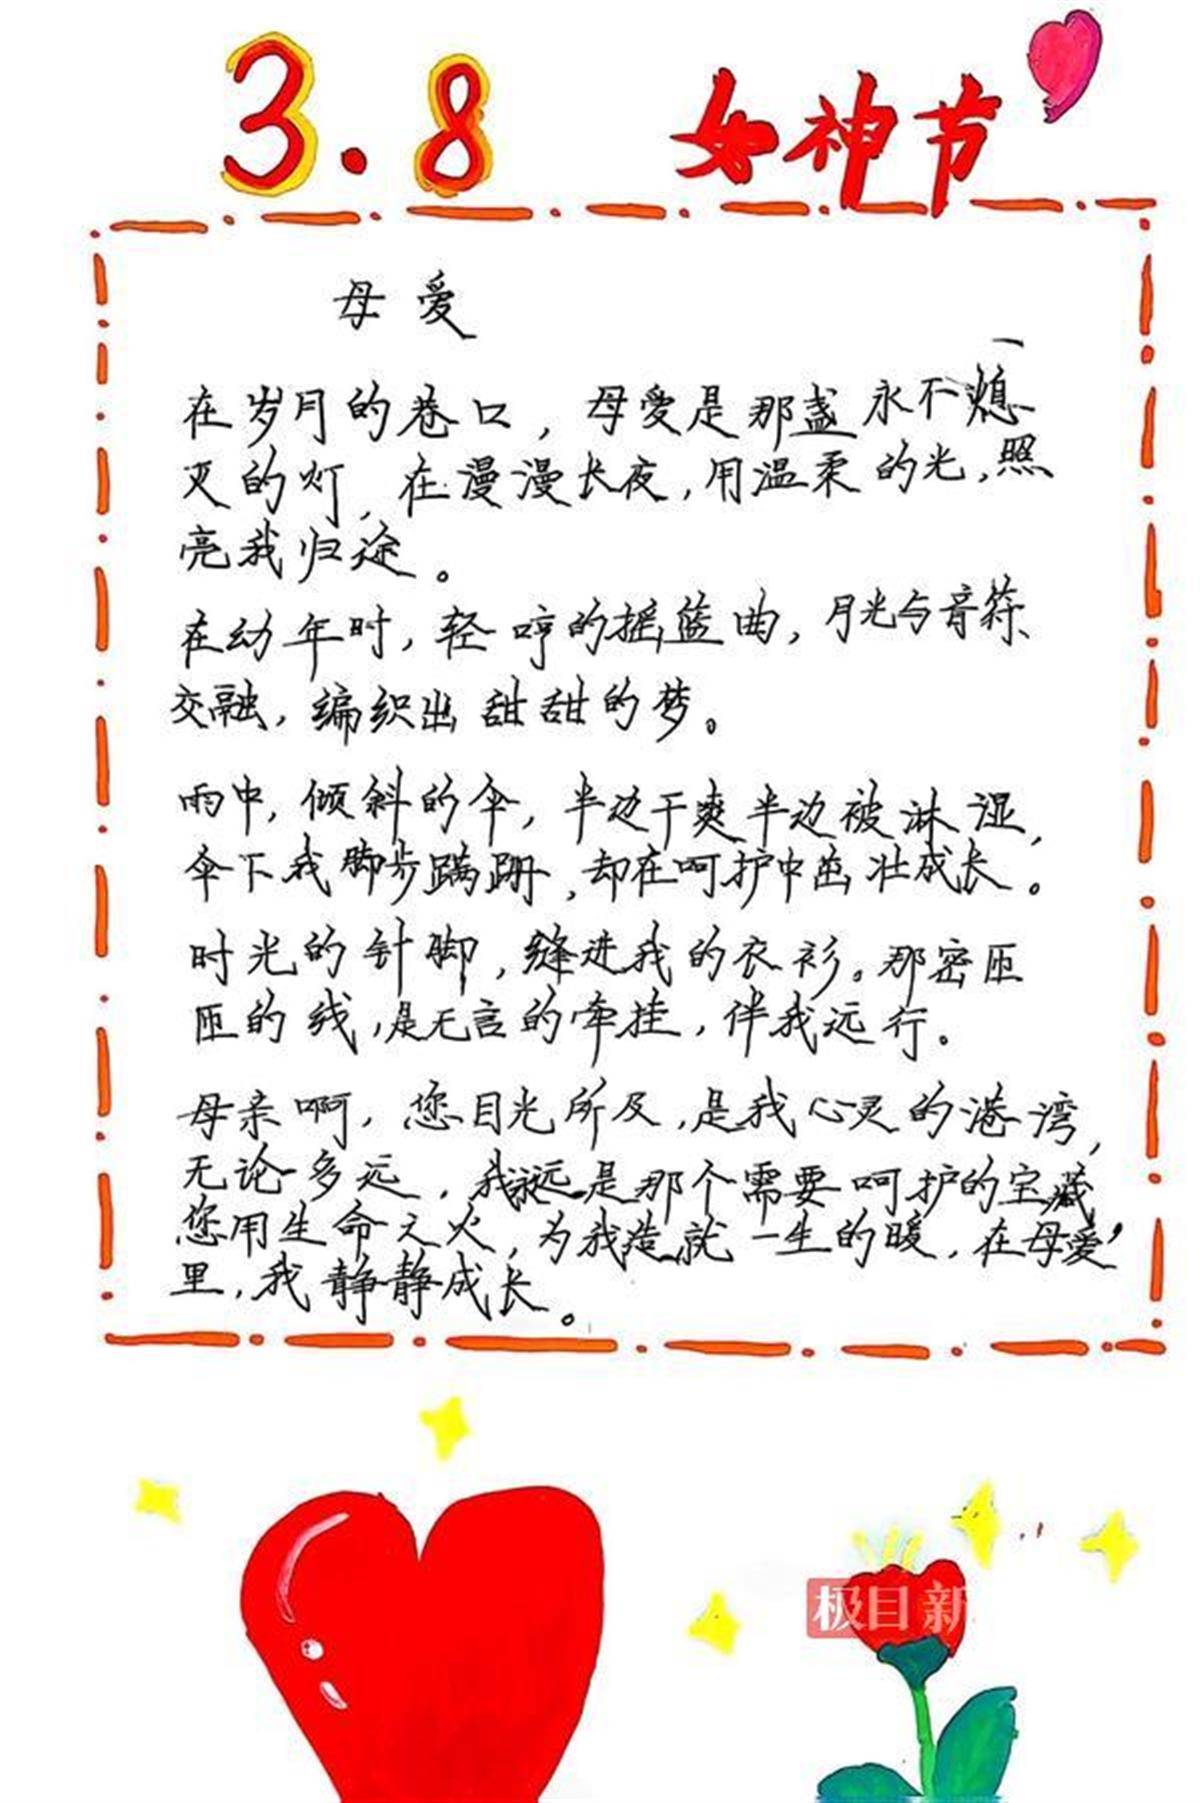 3.8 女神节
母爱
在岁月的巷口，母爱是那盏永不熄
灭的灯，在漫漫长夜，用温柔的光，照
亮我归途。
在幼年时，轻哼的摇篮曲，月光与音符
交融，编织出甜甜的梦。
雨中，倾斜的伞，半边干爽半边被淋湿，
伞下我脚步蹒跚，却在呵护中茁壮成长。
时光的针脚，缝进我的衣衫。那密匝
匝的线，是无言的牵挂，伴我远行。
母亲啊，您目光所及，是我心灵的港湾，
无论多远，我永远是那个需要呵护的宝藏
您用生命之火，为我造就一生的暖，在母爱
里，我静静成长。
极目新